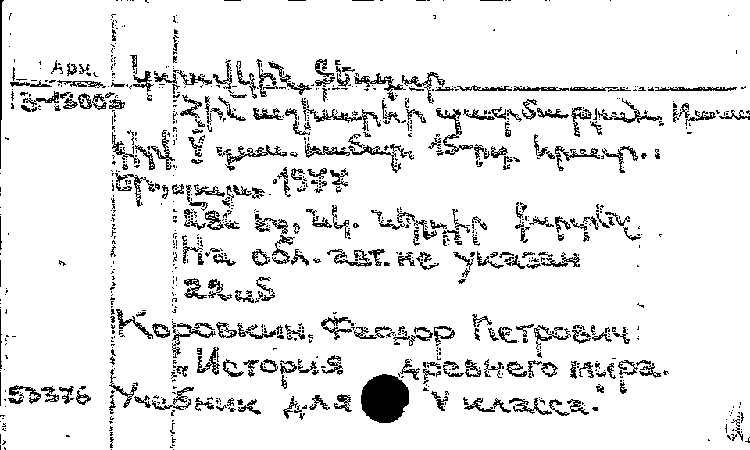 Арм.
Կորովկին, Ֆեոդոր
3-13003
Հին աշխարհի պատմություն. Դասա
գիրք V դաս. համար. 15-րդ հրատ.:
Եր., Լույս, 1977
էջ, նկ.
На обл. авт. не указан
Коровкин, Феодор Петрович
История древнего мира.
53376 Учебник для V класса.